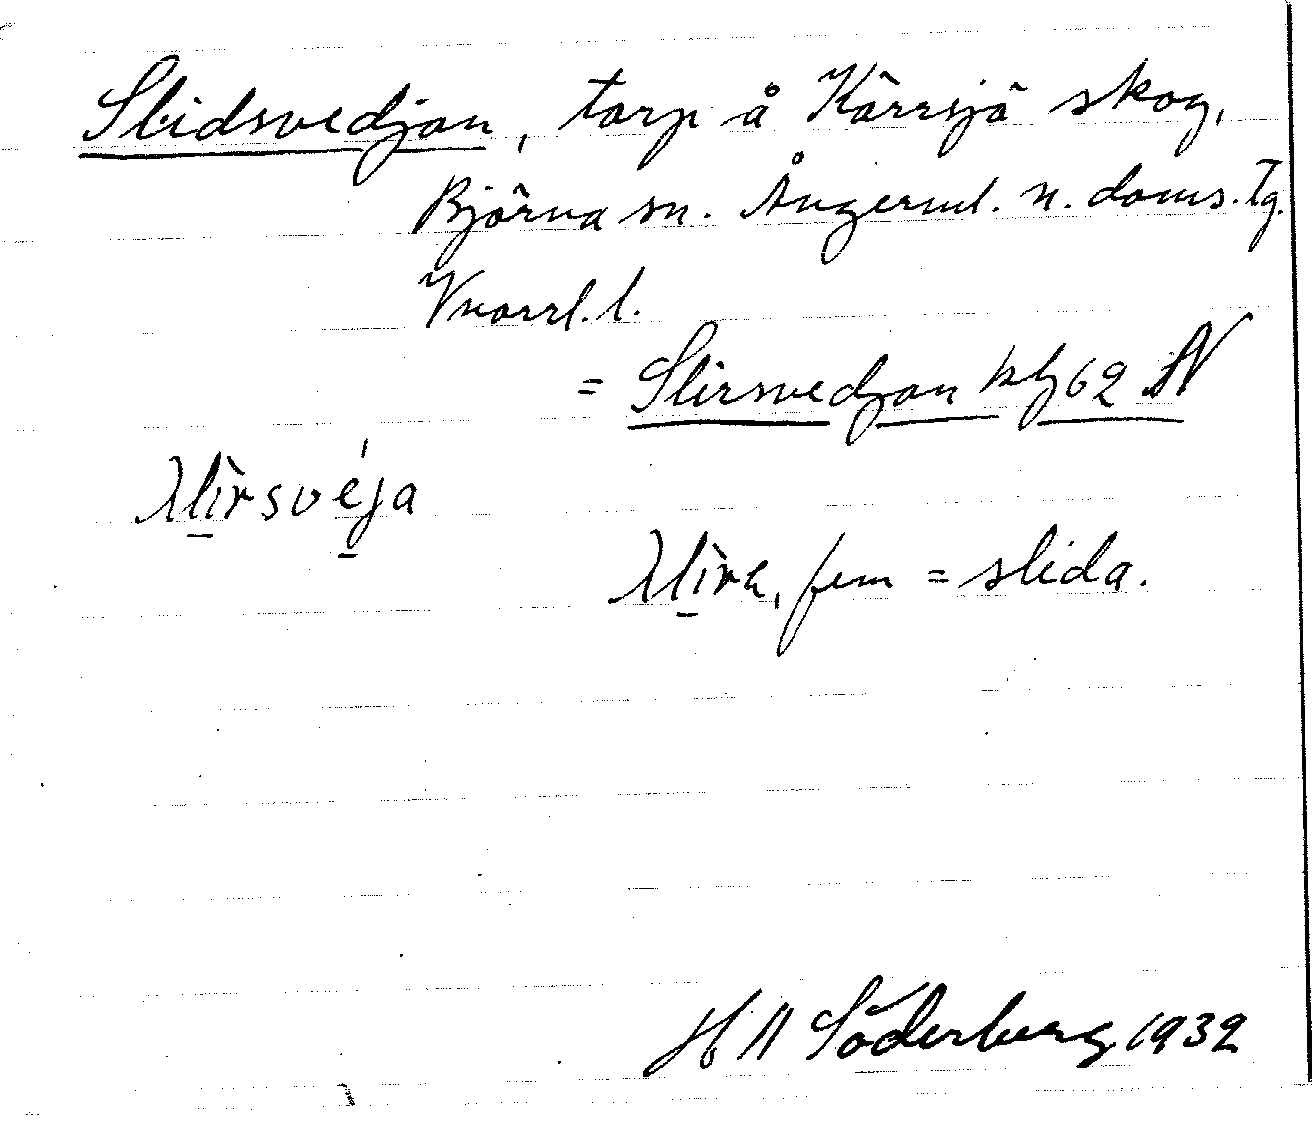 Slidsvedjan, torp å Kärrsjö skog,
Björna sn. Ångerml. n. doms. Tg.
Vnorrl. l.
= Slirsvedjan kbl 62 SV
slirsveja
slira, fem = slida.
Söderberg 1932